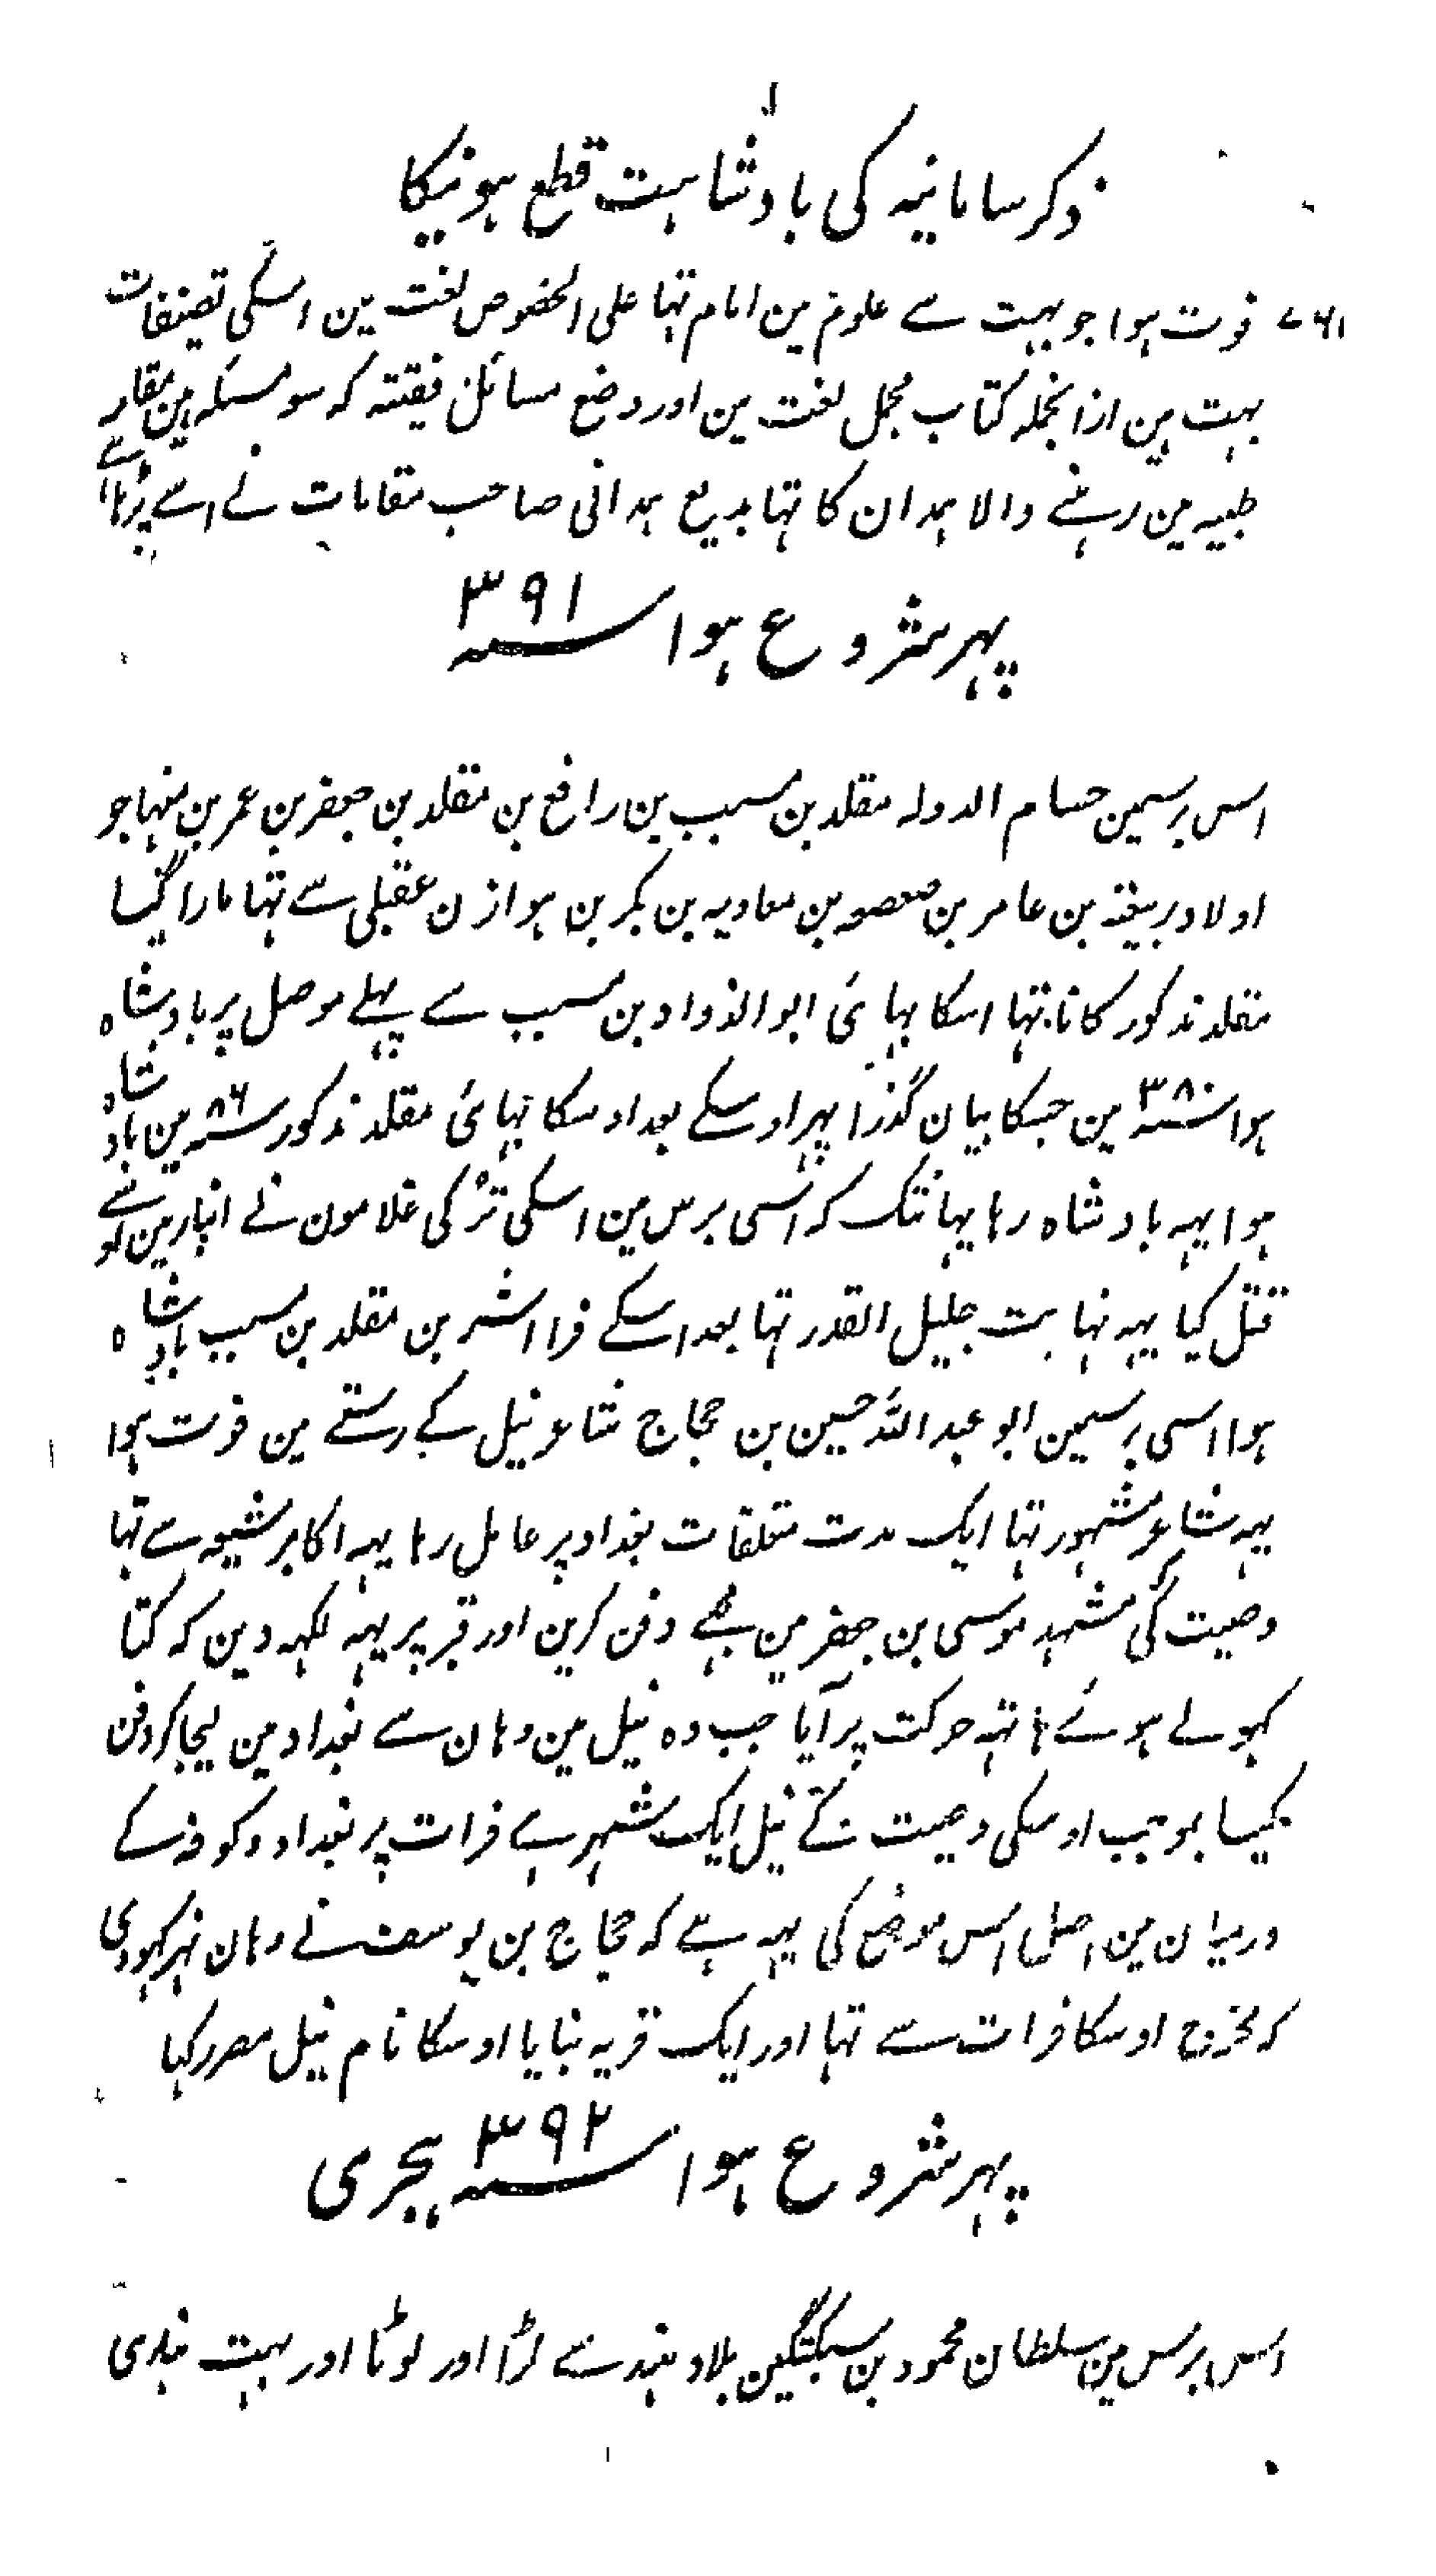 ذکر سامانیہ کی بادشاہت قطع ہونیکا
۷۶۱ فوت ہوا جو بہت سے علوم مین امام تہا علی الخصوص لغت مین اسکی تصنیفات
بہت ہین ازانجملہ کتاب مجمل لغت مین اور وضع مسائل فقیتہ کہ سو مسئلہ ہین مقامہ
طیبہ مین رہنے والا ہمدان کا تہا بدیع ہمدانی صاحب مقامات نے اسے پڑہا ہے
پہر شروع ہوا سنہ ۳۹۱
اس برسمین حسام الدولہ مقلد بن مسیب بن رافع بن مقلد بن جعفر بن عمر بن مہنا جو
اولاد ربیعہ بن عامر بن صعصعہ بن معاویہ بن بکر بن ہوازن عقیلی سے تہا مارا گیا
مقلد مذکور کانا تہا اسکا بہائی ابوالذواد بن مسیب سے پہلے موصل پر بادشاہ
ہوا سنہ ۳۸۰ مین جسکا بیان گذرا پہر اوسکے بعد اوسکا بہائی مقلد مذکور سنہ ۸۶ مین بادشاہ
ہوا یہہ بادشاہ رہا یہانتک کہ اسی برس مین اسکی ترکی غلامون نے انبار مین اوسے
قتل کیا یہہ نہایت جلیل القدر تہا بعد اسکے قرااشر بن مقلد بن مسیب بادشاہ
ہوا اسی برسمین ابو عبد اللہ حسین بن حجاج شاعر نیل کے رستے مین فوت ہوا
یہہ شاعر مشہور تہا ایک مدت متعلقات بغداد پر عامل رہا یہہ اکابر شیعہ سے تہا
وصیت کی کہ مشہد موسی بن جعفر مین مجہے دفن کرین اور قبر پر یہہ لکہہ دین کہ کتا
کہولے ہوئے ہاتہہ حرکت پر آیا جب وہ نیل مین وہان سے بغداد مین لیجا کر دفن
کیا بموجب اوسکی وصیت کے نیل ایک شہر ہے فرات پر بغداد و کوفہ کے
درمیان مین اصل اس موضع کی یہہ ہے کہ حجاج بن یوسف نے وہان نہر کہودی
کہ مخرج اوسکا فرات سے تہا اور ایک قریہ بنایا اوسکا نام نیل مصر رکہا
پہر شروع ہوا سنہ ۳۹۲ ہجری
اس برس مین سلطان محمود بن سبکتگین بلاد ہند سے لڑا اور لوٹا اور بہت بندی